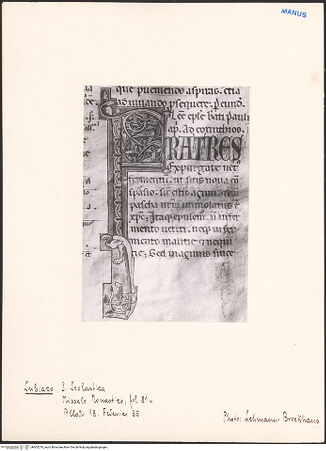 MANUS
que preveniendo aspiras. etia
adiuvando psequere. P eundē.
Lec eple bati Pauli
ap. Ad corinthios.
FRATRES
Expurgate vet
fermentū. ut sitis nova cō
spasio. sic estis açimi. &eni
pascha nr̄m immolatus ē
xp̄c. Itaq; epulem. n̄ infer
mento veteri. neq; in fer
mento malitie & nequi
tie; Sed in açimis since
Subiaco S. Scolastica
Missale Monastico, fol. 81v
Allodi 18, Federici 35
Photo: Lehmann-Brockhaus